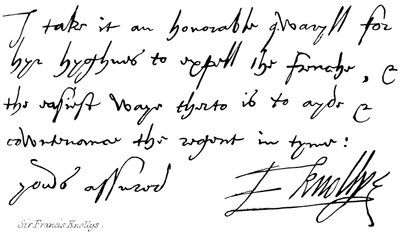 I take it an honorable qwaryll for
hyr hyghnes to expell the frenche, &
the easiest waye therto is to ayde &
cowntenance the regent in tyme:
yours assured
F knollys
Sir Francis Knollys.